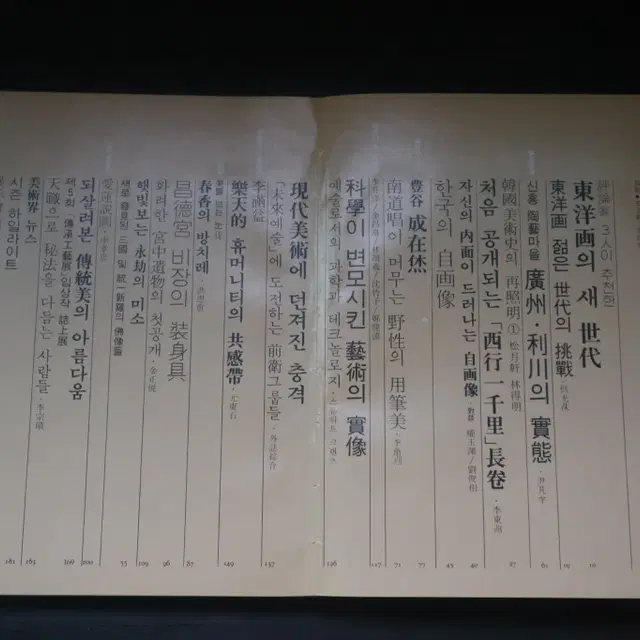 評論家 3人이 추천한
東洋画의 새 世代
東洋画 젊은 世代의 挑戰
19
신흥 陶藝마을 廣州·利川의 實態
61
韓國美術史의 再照明① 松月軒 林得明
처음 공개되는 「西行一千里」長卷 ·李東洲
37
자신의 内面이 드러나는 自画像 對談 權玉淵/劉俊相
한국의 自画像
43
豊谷 成在烋
77
南道唱이 머무는 野性의 用筆美
71
科學이 변모시킨 藝術의 實像
117
예술로서의 과학과 테크놀로지
126
現代美術에 던져진 충격
「未來예술」에 도전하는 前衛그룹들 ·外誌綜合
137
李禹煥
樂天的 휴머니티의 共感帶 ·元東石
149
春香의 방치레
昌德宮 비장의 裝身具
87
화려한 宮中遺物의 첫공개
96
햇빛보는 永劫의 미소
109
새로 발견된 三國 및 統一新羅의 佛像들
73
되살려본 傳統美의 아름다움
200
제5회 〈傳承工藝展〉입상작 誌上展
天職으로 秘法을 다듬는 사람들
美術界 뉴스
183
시즌 하일라이트
181